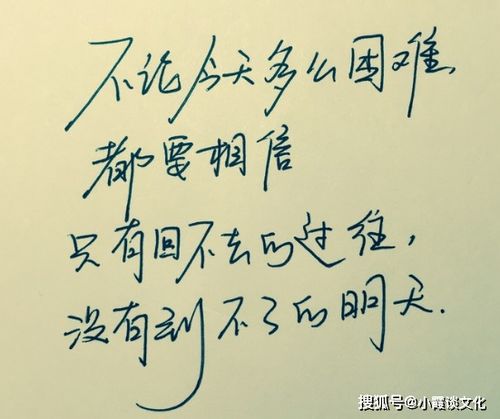 不论今天多么困难,
都要相信
只有回不去的过往,
没有到不了的明天.
搜狐号@小霞谈文化